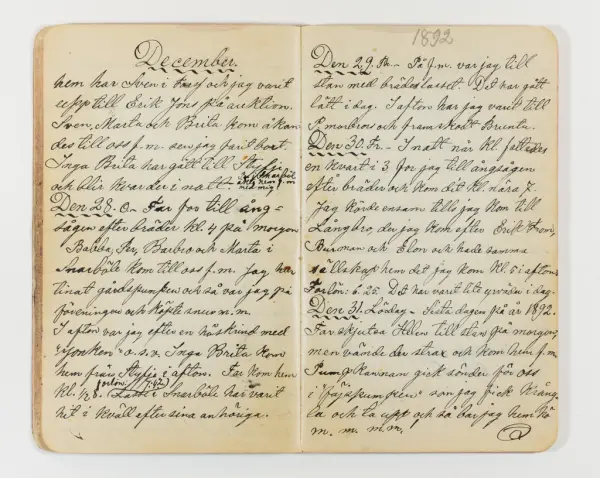 December.
hem har Sven i och jag varit
upp till Erik Jons på auktion.
Sven, Marta och Brita kom åkan
des till oss f.m. sen jag farit bort.
Inga Brita har gått till Styfje
och blir kvar der i natt.
hem f.m.
med mig
Den 28. O- Far for till ång=
sågen efter bräder kl. 4 på morgon
Babba, Per, Barbro och Marta i
Snarböle kom till oss f.m. Jag har
tinat gårdspumpen och så var jag på
föreningen och köpte snus m.m.
I afton var jag efter en höskrind med
"Jonken" o.s.v. Inga Brita kom
hem från Styfje i afton. Far kom hem
förlön. 7:92)
kl. ½ 8. Lasse i Snarböle har varit
hit i kväll efter sina anhöriga.
1892
Den 29. Th.- På f.m. var jag till
stan med brädeslasset. Det har gått
lätt i dag. I afton har jag varit till
P. morbros och framskodt Brunta.
Den 30. Fr.- I natt när kl. fattades
en kvart i 3 for jag till ångsågen
efter bräder och kom dit kl. nära 7.
Jag körde ensam tills jag kom till
Långbro, der jag kom efter Erik Ers,
Buxman och Elon och hade samma
sällskap hem det jag kom kl. 5 i afton.
Forlön: 6.25. Det har varit lite yrväder i dag.
Den 31. Lördag - Sista dagen på år 1892.
Far skjutsa Ellen till stan på morgon,
men vände der strax och kom hem f.m.
Pumpkannan gick sönder för oss
i "fäjspumpen" som jag fick krång-
la och ta upp och så bar jag hem hö
m. m. m.m.